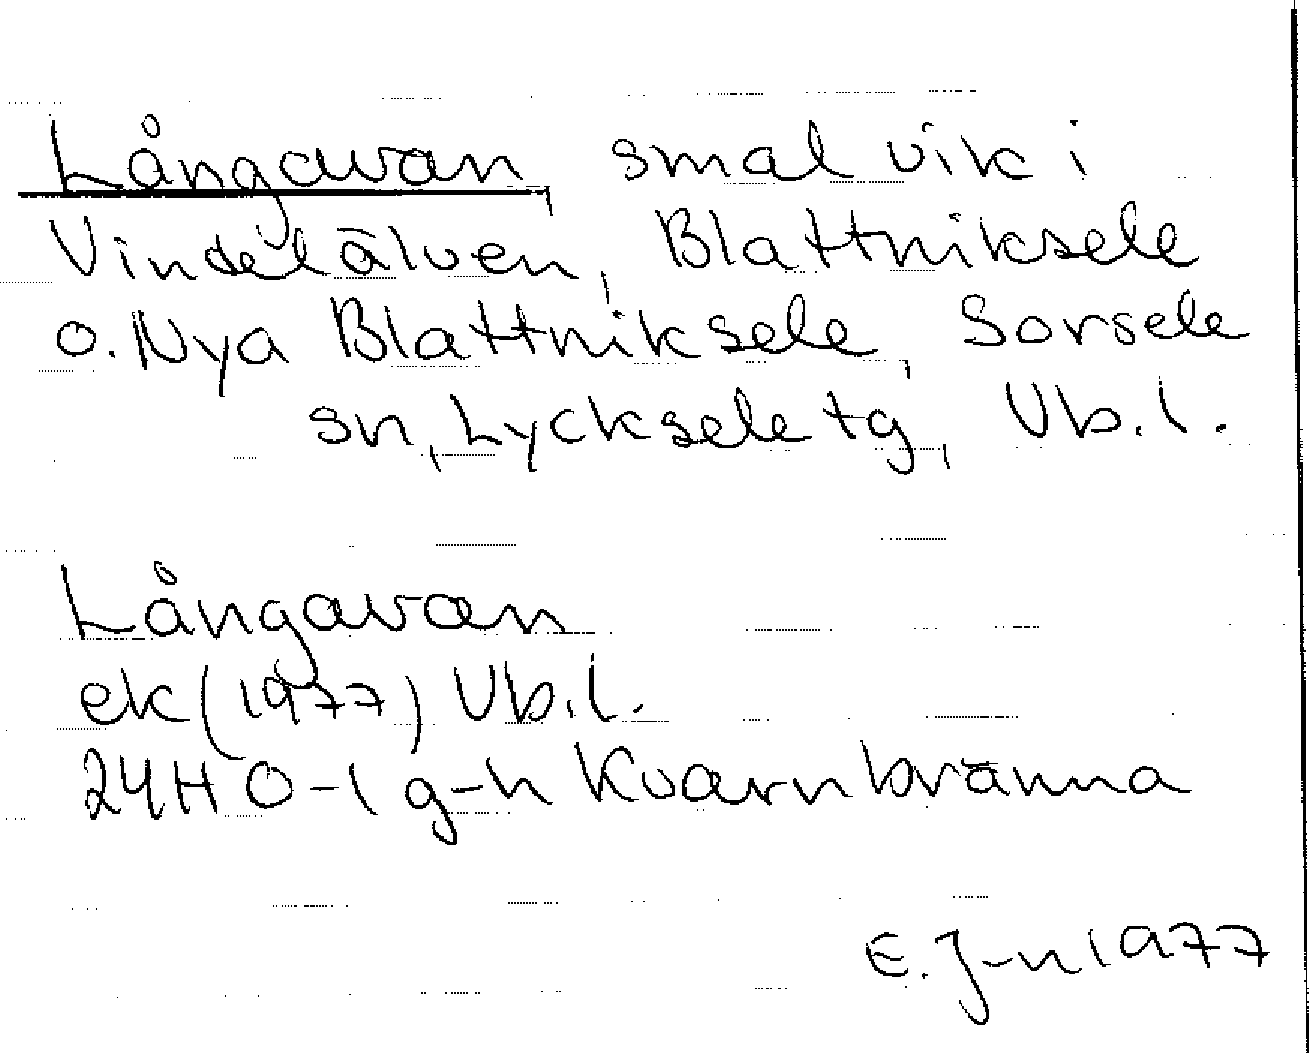 Långavan, smal vik i
Vindelälven, Blattniksele
o. Nya Blattniksele, Sorsele
sn, Lycksele tg, Vb.l.
Långavan
ek (1977) Vb.l.
24H 0-1 g-h Kvarnbränna
E. J-n 1977